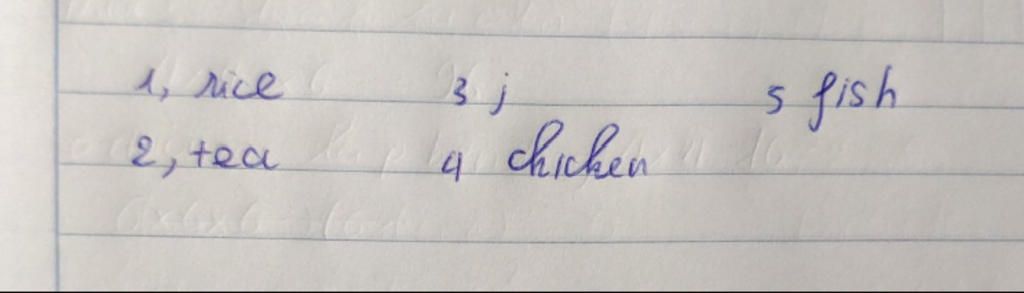 1, rice 3 j 5 fish
2, tea 4 chicken